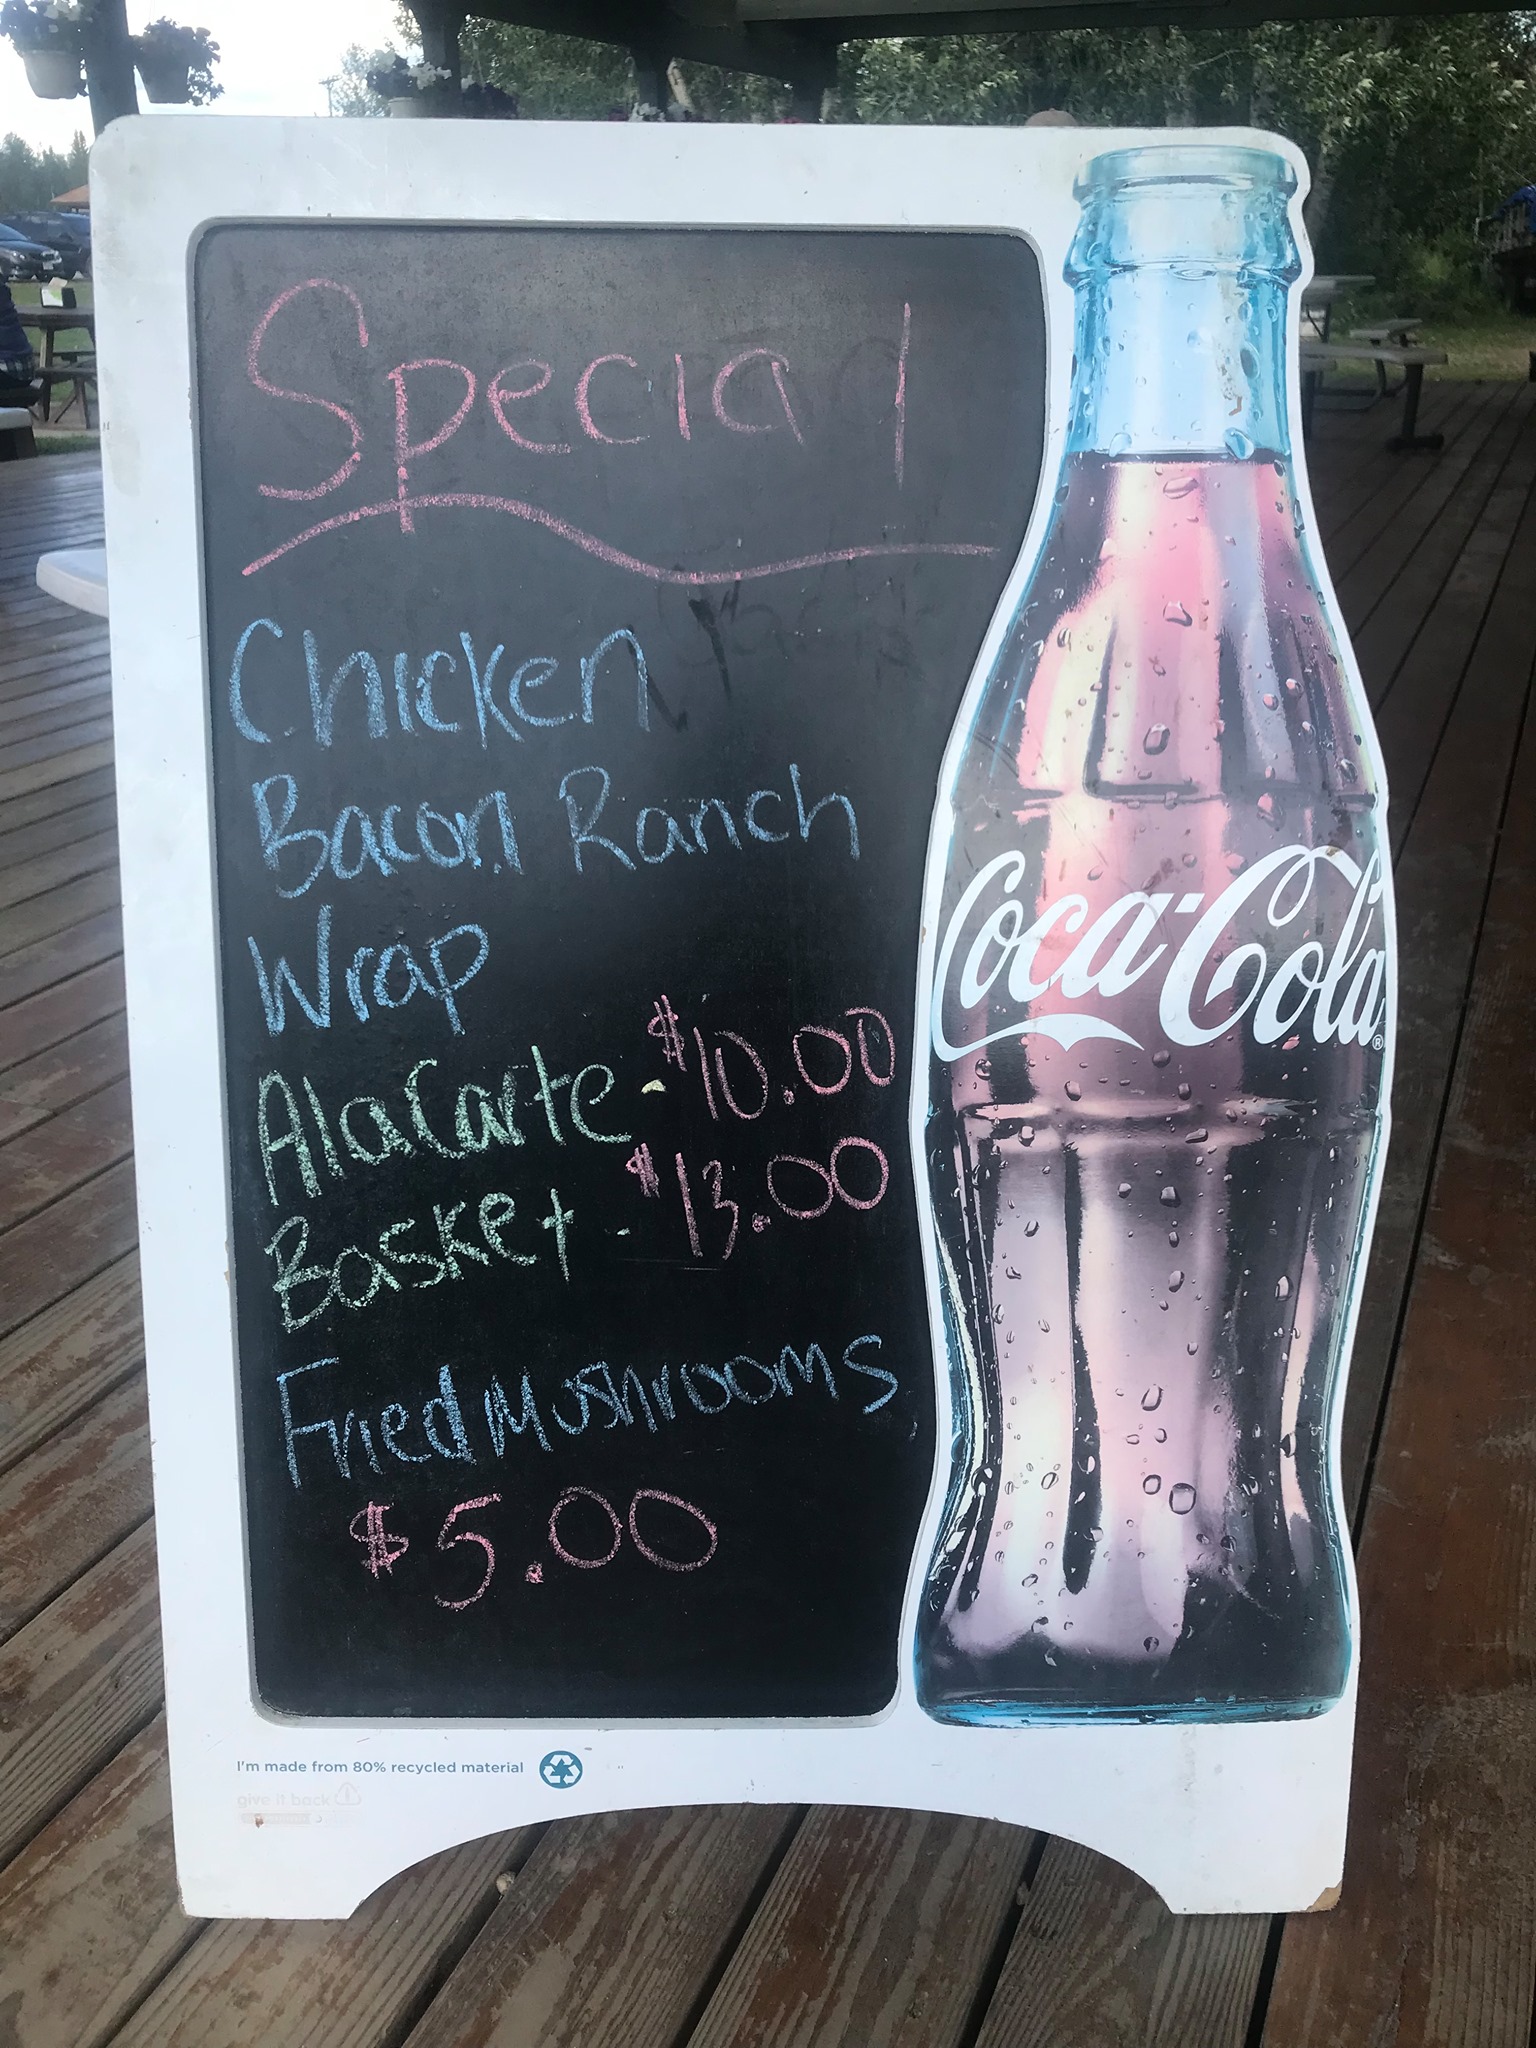 Special
Chicken
Bacon Ranch
Wrap
AlaCarte - $10.00
Basket - $13.00
Fried Mushrooms
$5.00
Coca-Cola®
I'm made from 80% recycled material
give it back